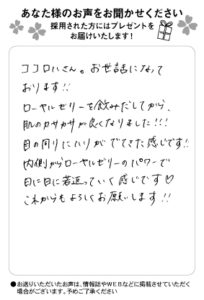 あなた様のお声をお聞かせください
採用された方にはプレゼントを
お届けいたします!
ココロハさん。お世話になって
おります!!
ローヤルゼリーを飲みだしてから、
肌のカサカサが良くなりました!!!
目の周りにハリがでてきた感じです!!
内側からローヤルゼリーのパワーで
日に日に若返っていく感じです♡
これからもよろしくお願いします!!
●お送りいただいたお声は、情報誌やWEBなどに掲載させていただく
場合がございます。予めご了承ください